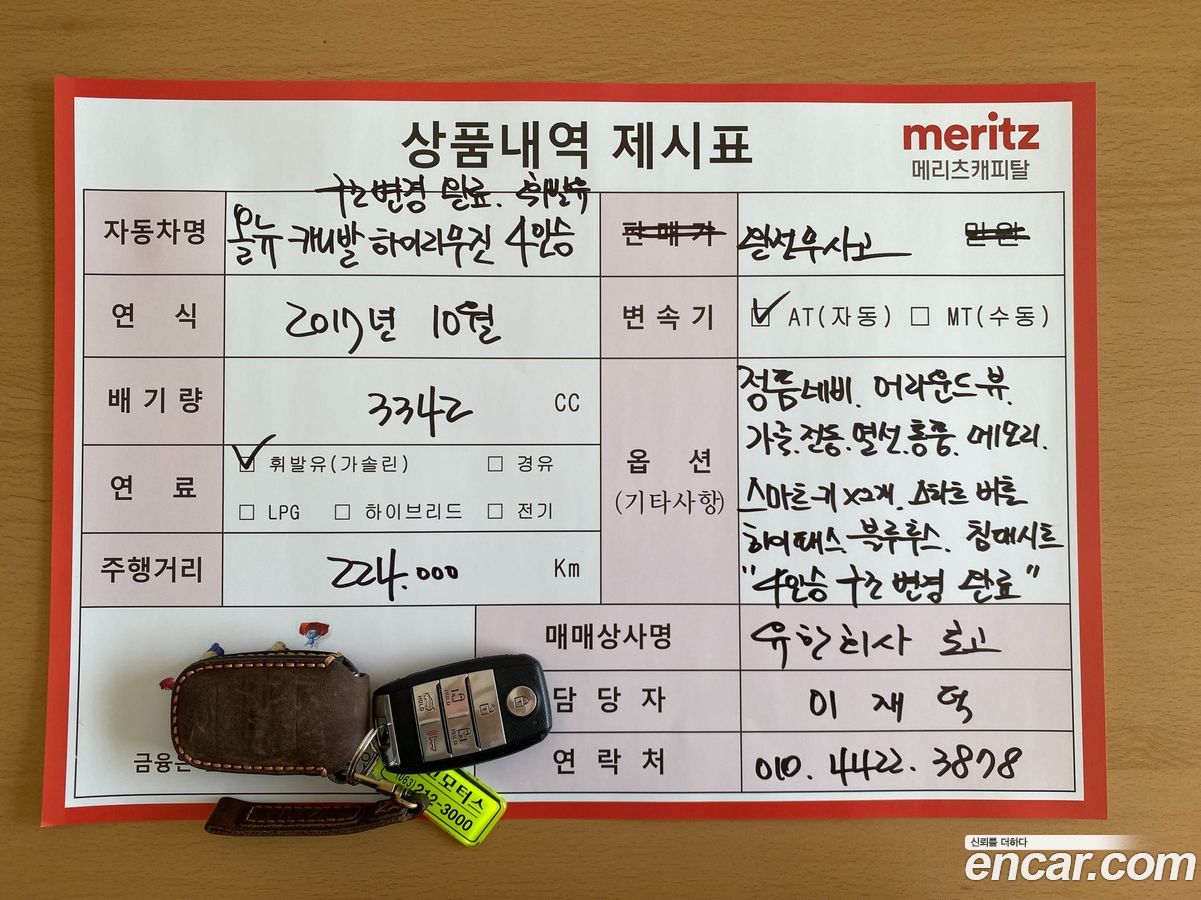 상품내역 제시표
meritz
메리츠캐피탈
구조변경 완료. 휘발유
자동차명
올뉴 카니발 하이리무진 4인승
판매가
완전무사고
만원
연 식
2017년 10월
변속기
☑ AT(자동) □ MT(수동)
배기량
3342 CC
연 료
☑ 휘발유(가솔린) □ 경유
□ LPG □ 하이브리드 □ 전기
주행거리
224.000 Km
옵 션
(기타사항)
정품네비. 어라운드뷰.
가죽.전동.열선.통풍.메모리.
스마트키 x2개. 스타트 버튼
하이패스. 블루투스. 침대시트
"4인승 구조변경 완료"
매매상사명
유한회사
담당자
이재덕
연락처
010.4422.3878
금융은
HOLD
HOLD
HOLD
모터스
(063)212-3000
신뢰를 더하다
encar.com